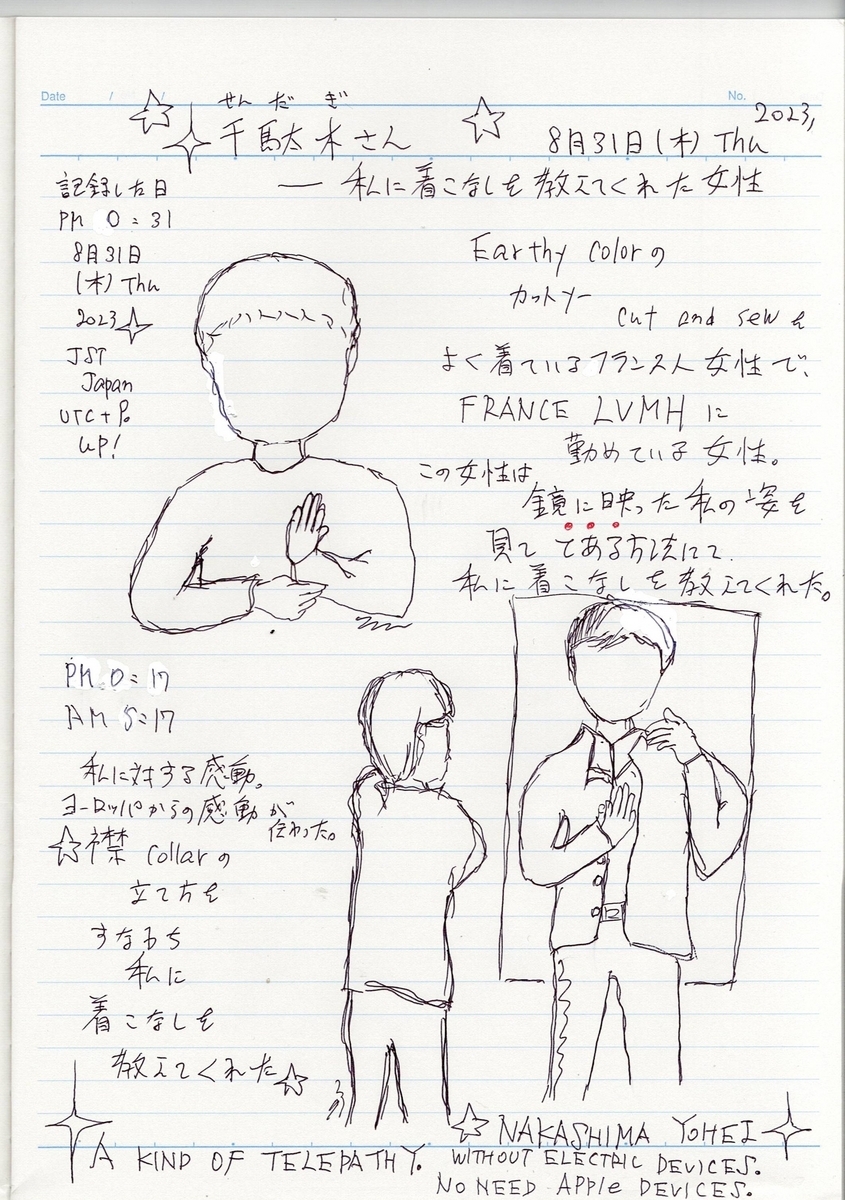 Date / /
No.
2023,
せんだぎ
千駄木さん
8月31日(木) Thu
— 私に着こなしを教えてくれた女性
記録した日
PM 0:31
8月31日
(木) Thu
2023
JST
Japan
UTC+9
UP!
Earthy colorの
カットソー
cut and sewを
よく着ているフランス人女性で、
FRANCE LVMHに
勤めている女性。
この女性は
鏡に映った私の姿を
見てとある方法にて
私に着こなしを教えてくれた。
PM 0:17
AM 5:17
私に対する感動。
ヨーロッパからの感動が
伝わった。
襟 collarの
立て方を
すなわち
私に
着こなしを
教えてくれた
NAKASHIMA YOHEI
A KIND OF TELEPATHY.
WITHOUT ELECTRIC DEVICES.
NO NEED APPle DEVICES.